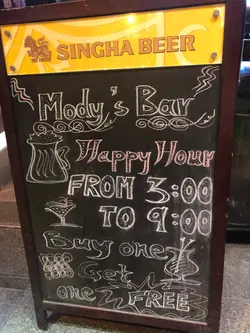 SINGHA BEER
Mody's Bar
Happy Hour
FROM 3:00
TO 9:00
Buy one
Get
one FREE